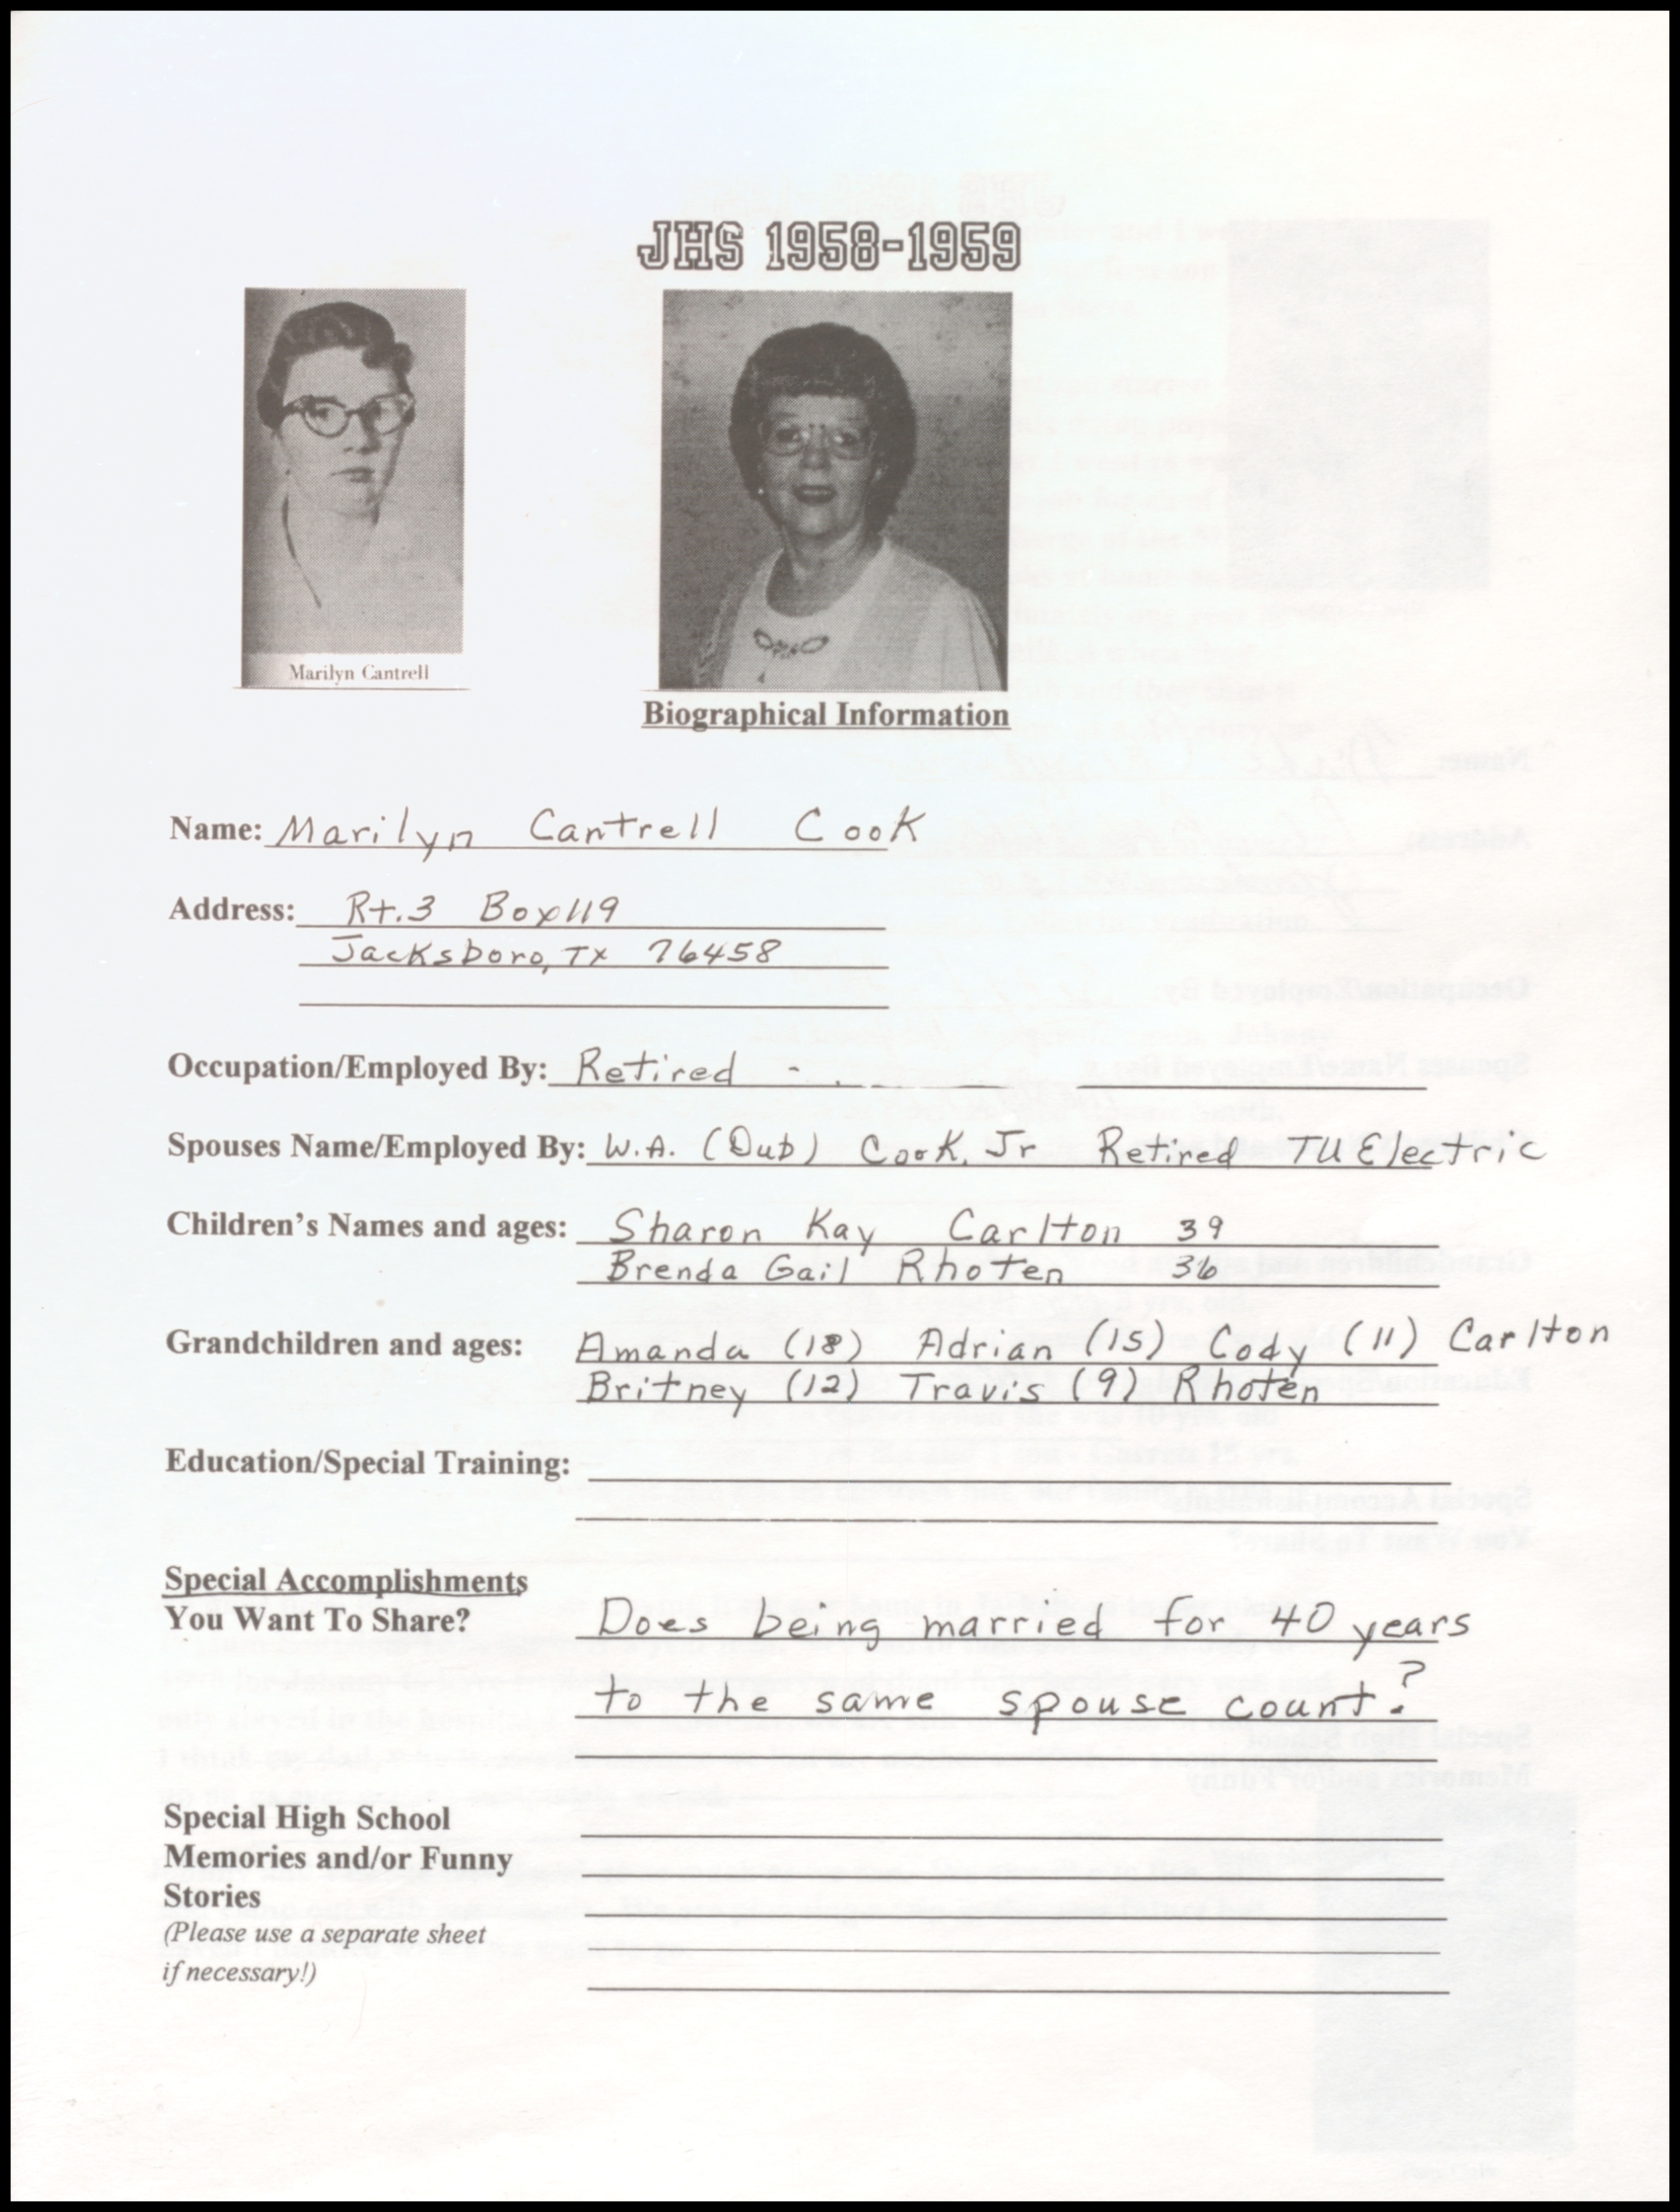 JHS 1958-1959
Marilyn Cantrell
Biographical Information
Name: Marilyn Cantrell Cook
Address: Rt.3 Box 119
Jacksboro, Tx 76458
Occupation/Employed By: Retired -
Spouses Name/Employed By: W.A. (Dub) Cook, Jr Retired TU Electric
Children's Names and ages: Sharon Kay Carlton 39
Brenda Gail Rhoten 36
Grandchildren and ages: Amanda (18) Adrian (15) Cody (11) Carlton
Britney (12) Travis (9) Rhoten
Education/Special Training:
Special Accomplishments
You Want To Share? Does being married for 40 years
to the same spouse count?
Special High School
Memories and/or Funny
Stories
(Please use a separate sheet
if necessary!)